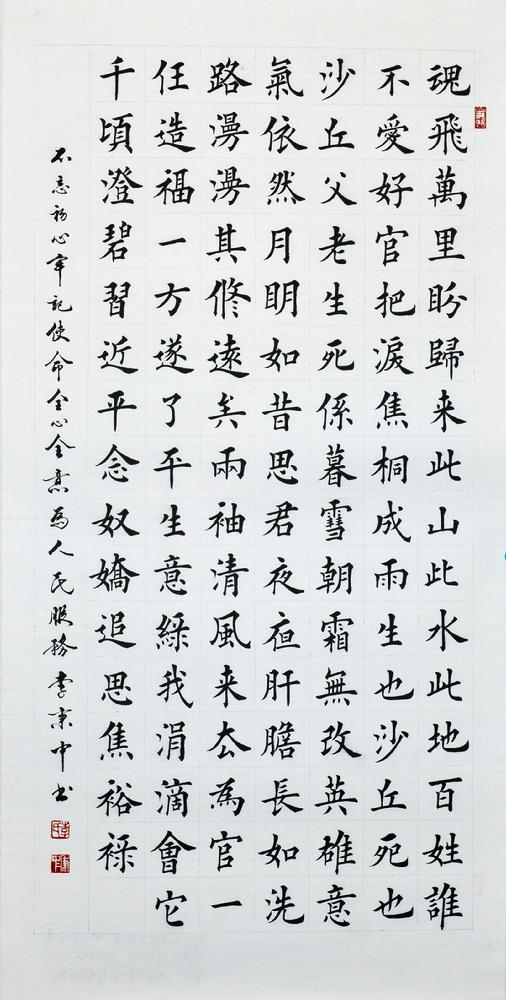 魂飛萬里盼歸来此山此水此地百姓誰
不愛好官把淚焦桐成雨生也沙丘死也
沙丘父老生死係暮雪朝霜無改英雄意
氣依然月明如昔思君夜夜肝膽長如洗
路漫漫其修遠矣兩袖清風来去為官一
任造福一方遂了平生意綠我涓滴會它
千頃澄碧習近平念奴嬌追思焦裕禄
不忘初心牢記使命全心全意為人民服務李東中书